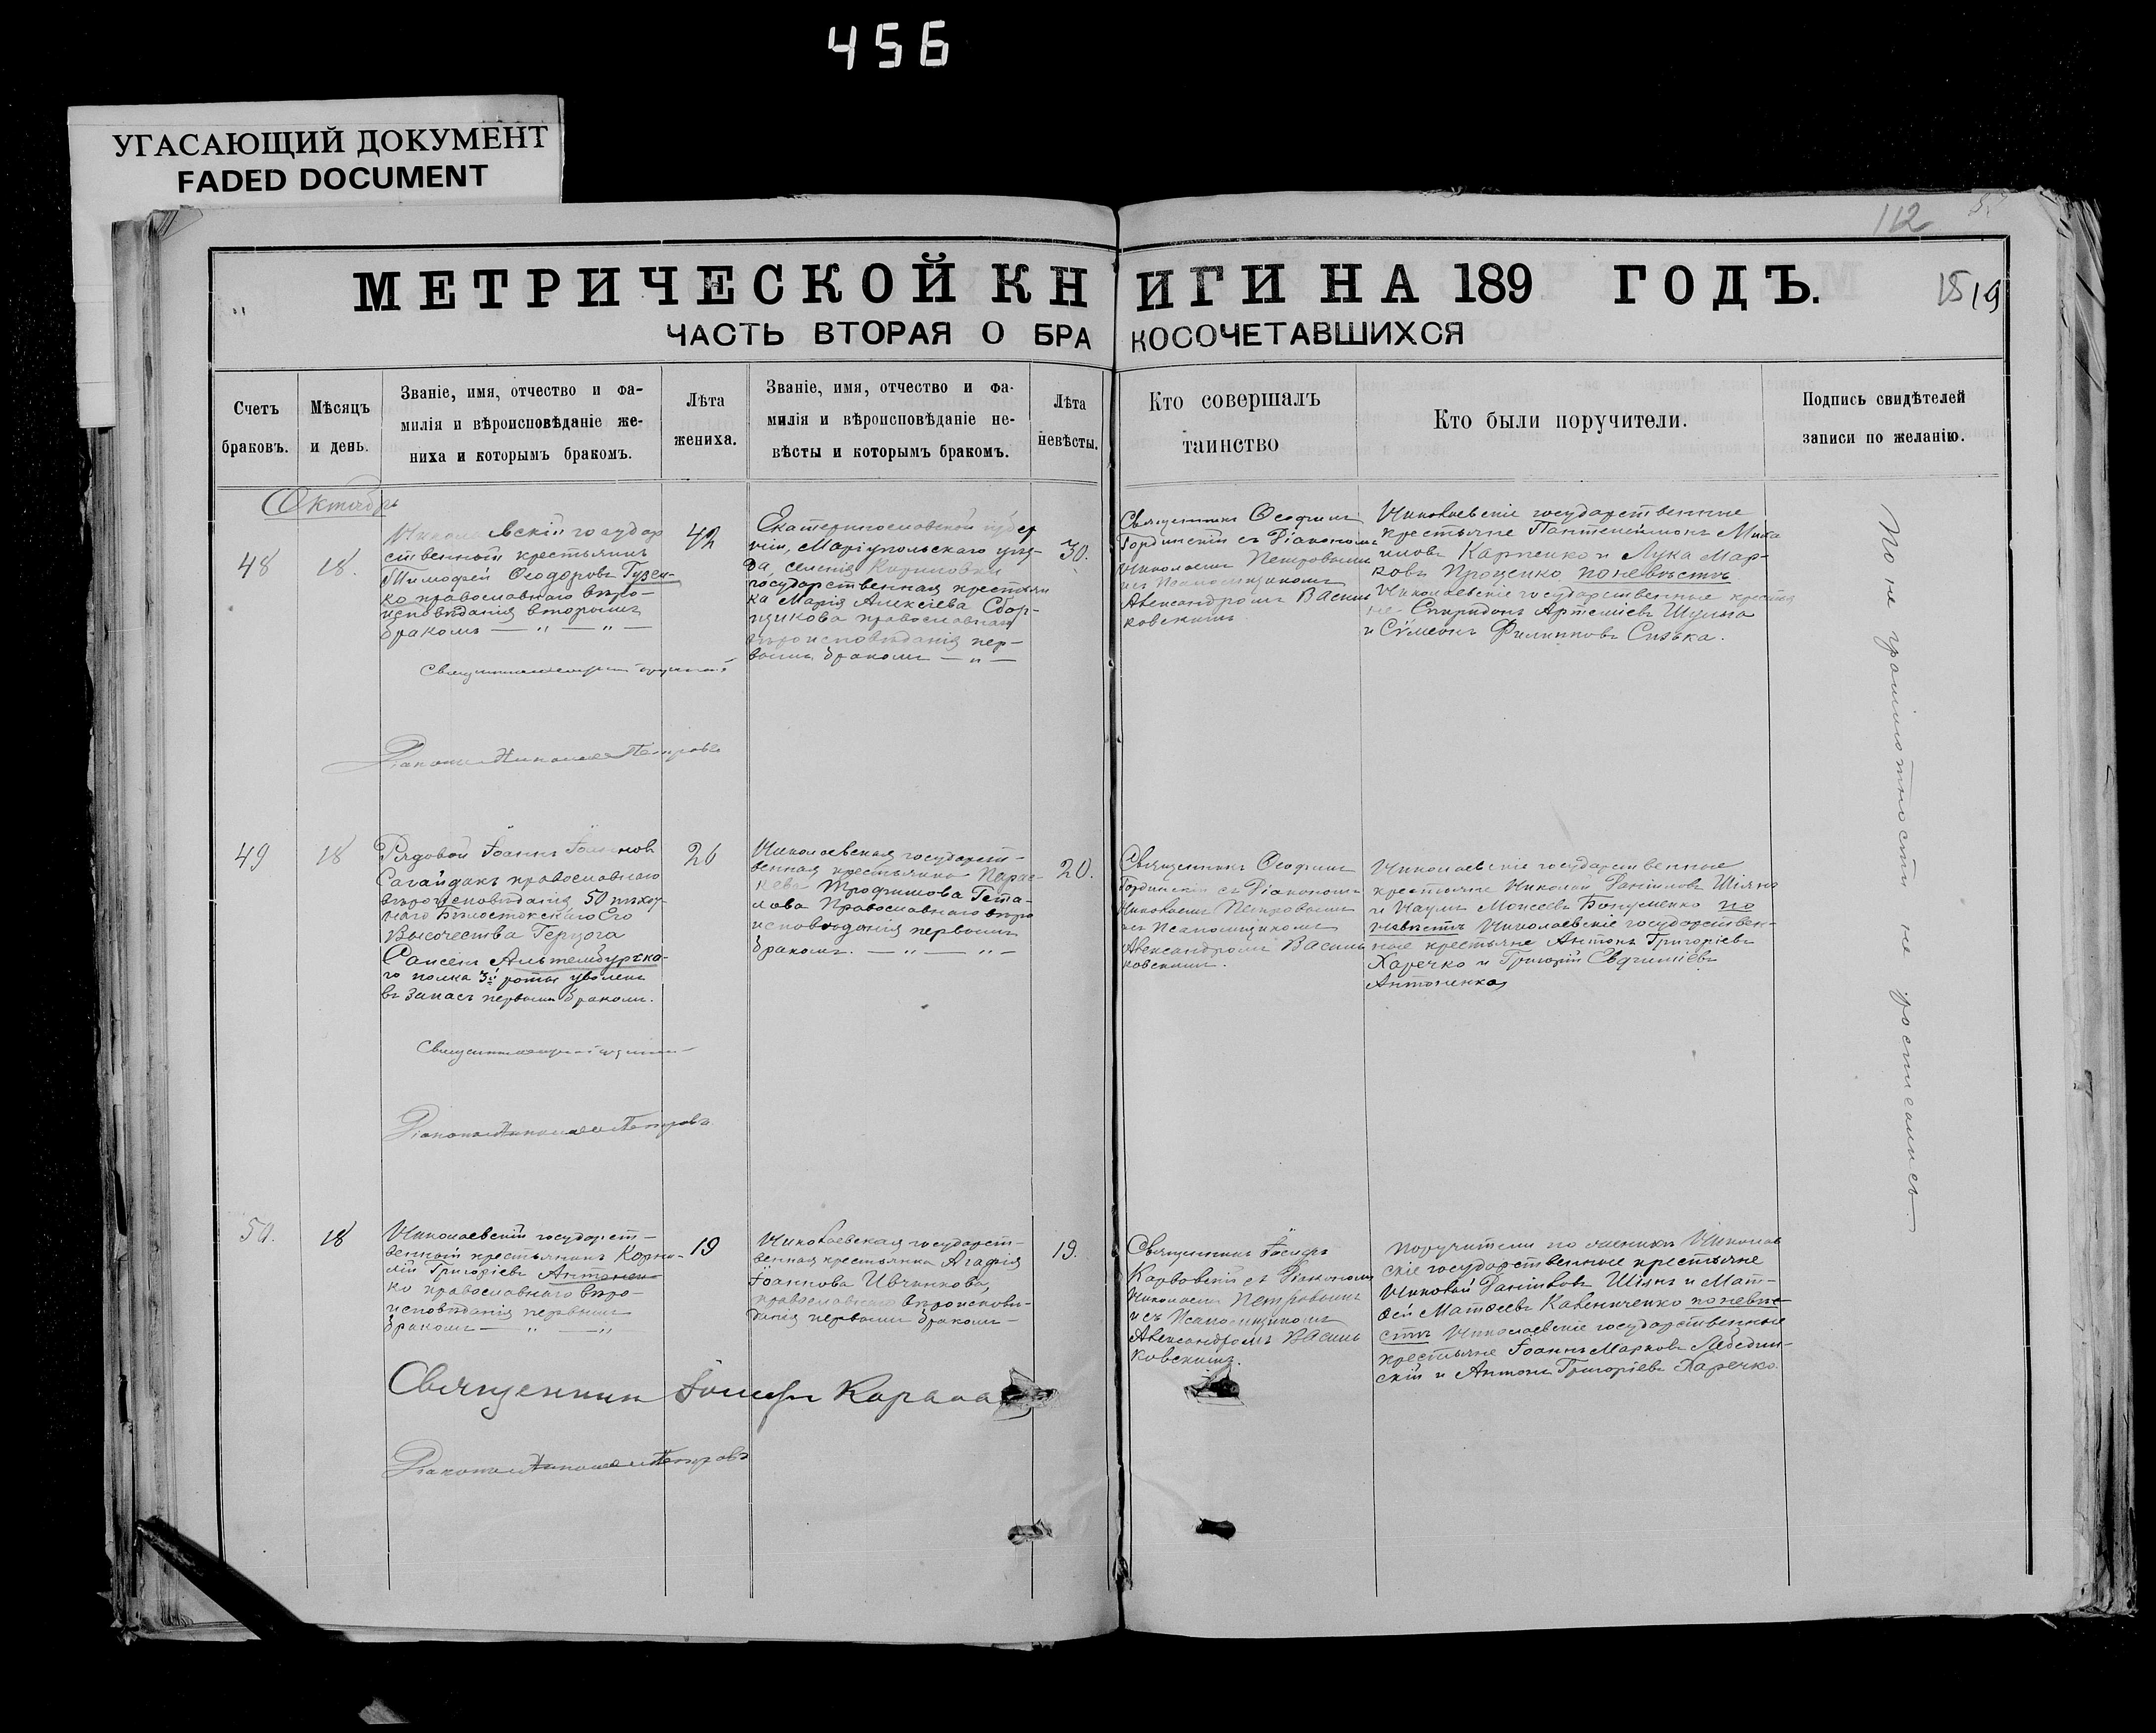 456
УГАСАЮЩИЙ ДОКУМЕНТ
FADED DOCUMENT
112
МЕТРИЧЕСКОЙ КНИГИ НА 189 ГОДЪ.
1519
ЧАСТЬ ВТОРАЯ О БРАКОСОЧЕТАВШИХСЯ
Счетъ
браковъ.
Мѣсяцъ
и день.
Званіе, имя, отчество и фа-
милія и вѣроисповѣданіе же-
ниха и которымъ бракомъ.
Лѣта
жениха.
Званіе, имя, отчество и фа-
милія и вѣроисповѣданіе не-
вѣсты и которымъ бракомъ.
Лѣта
невѣсты.
Кто совершалъ
таинство
Кто были поручители.
Подпись свидѣтелей
записи по желанію.
Октябрь
48
18.
Николаевскій государ
ственный крестьянинъ
Тимофей Ѳеодоровъ Гузен-
ко православнаго вѣро-
исповѣданія вторымъ
бракомъ — " — " —
42
Екатеринославской губер
ніи, Маріупольскаго уѣз-
да, селенія
государственная крестьян
ка Марія Алексіева Сбор-
щикова православнаго
вѣроисповѣданія пер-
вымъ бракомъ — " —
30.
Священникъ Ѳеофилъ
Гординскій съ Діакономъ
Николаемъ Петровымъ
и съ Псаломщикомъ
Александромъ Василь
ковскимъ
Николаевскіе государственные
крестьяне Пантелеимонъ Миха
иловъ Карпенко и Лука Мар-
ковъ Проценко по невѣстѣ
Николаевскіе государственные крестья
не Спиридонъ Артеміевъ Шульга
и Сѵмеонъ Филипповъ Сизька.
Священникъ
Діаконъ Николай Петровъ
49
18
Рядовой Іоаннъ Іоанновъ
Сагайдакъ православнаго
вѣроисповѣданія 50 пѣхот
наго Бѣлостокскаго Его
Высочества Герцога
Саксен Альтембургска-
го полка 3й роты уволен
въ запасъ первымъ бракомъ.
26
Николаевская государст-
венная крестьянка Парас-
кева Трофимова Гета-
лова Православнаго вѣро
исповѣданія первымъ
бракомъ. — " — " —
20.
Священникъ Ѳеофилъ
Гординскій съ Діакономъ
Николаемъ Петровымъ
и съ Псаломщикомъ
Александромъ Василь
ковскимъ.
Николаевскіе государственные
крестьяне Николай Даніиловъ Шіянъ
и Наумъ Моисеевъ по
невѣстѣ Николаевскіе государствен-
ные крестьяне Антонъ Григоріевъ
Харечко и Григорій Евфиміевъ
Антоненко
Священникъ
Діаконъ Николай Петровъ
50.
18
Николаевскій государст-
венный крестьянинъ Корни-
лій Григоріевъ Антонен-
ко православнаго вѣро-
исповѣданія первымъ
бракомъ — " — "
19
Николаевская государст-
венная крестьянка Агафія
Іоаннова Ивчинкова,
православнаго вѣроисповѣ-
данія первымъ бракомъ —
19.
Священникъ Іосифъ
Карвовскій съ Діакономъ
Николаемъ Петровымъ
и съ Псаломщикомъ
Александромъ Василь
ковскимъ.
Поручители по женихѣ Николаев
скіе государственные крестьяне
Николай Даніиловъ Шіянъ и Мат-
ѳей Матѳеевъ Кавениченко по невѣ-
стѣ Николаевскіе государственные
крестьяне Іоаннъ Марковъ Лебедин-
скій и Антонъ Григоріевъ Харечко
Священникъ Іосифъ
Діаконъ Николай Петровъ
По не грамотности не росписались